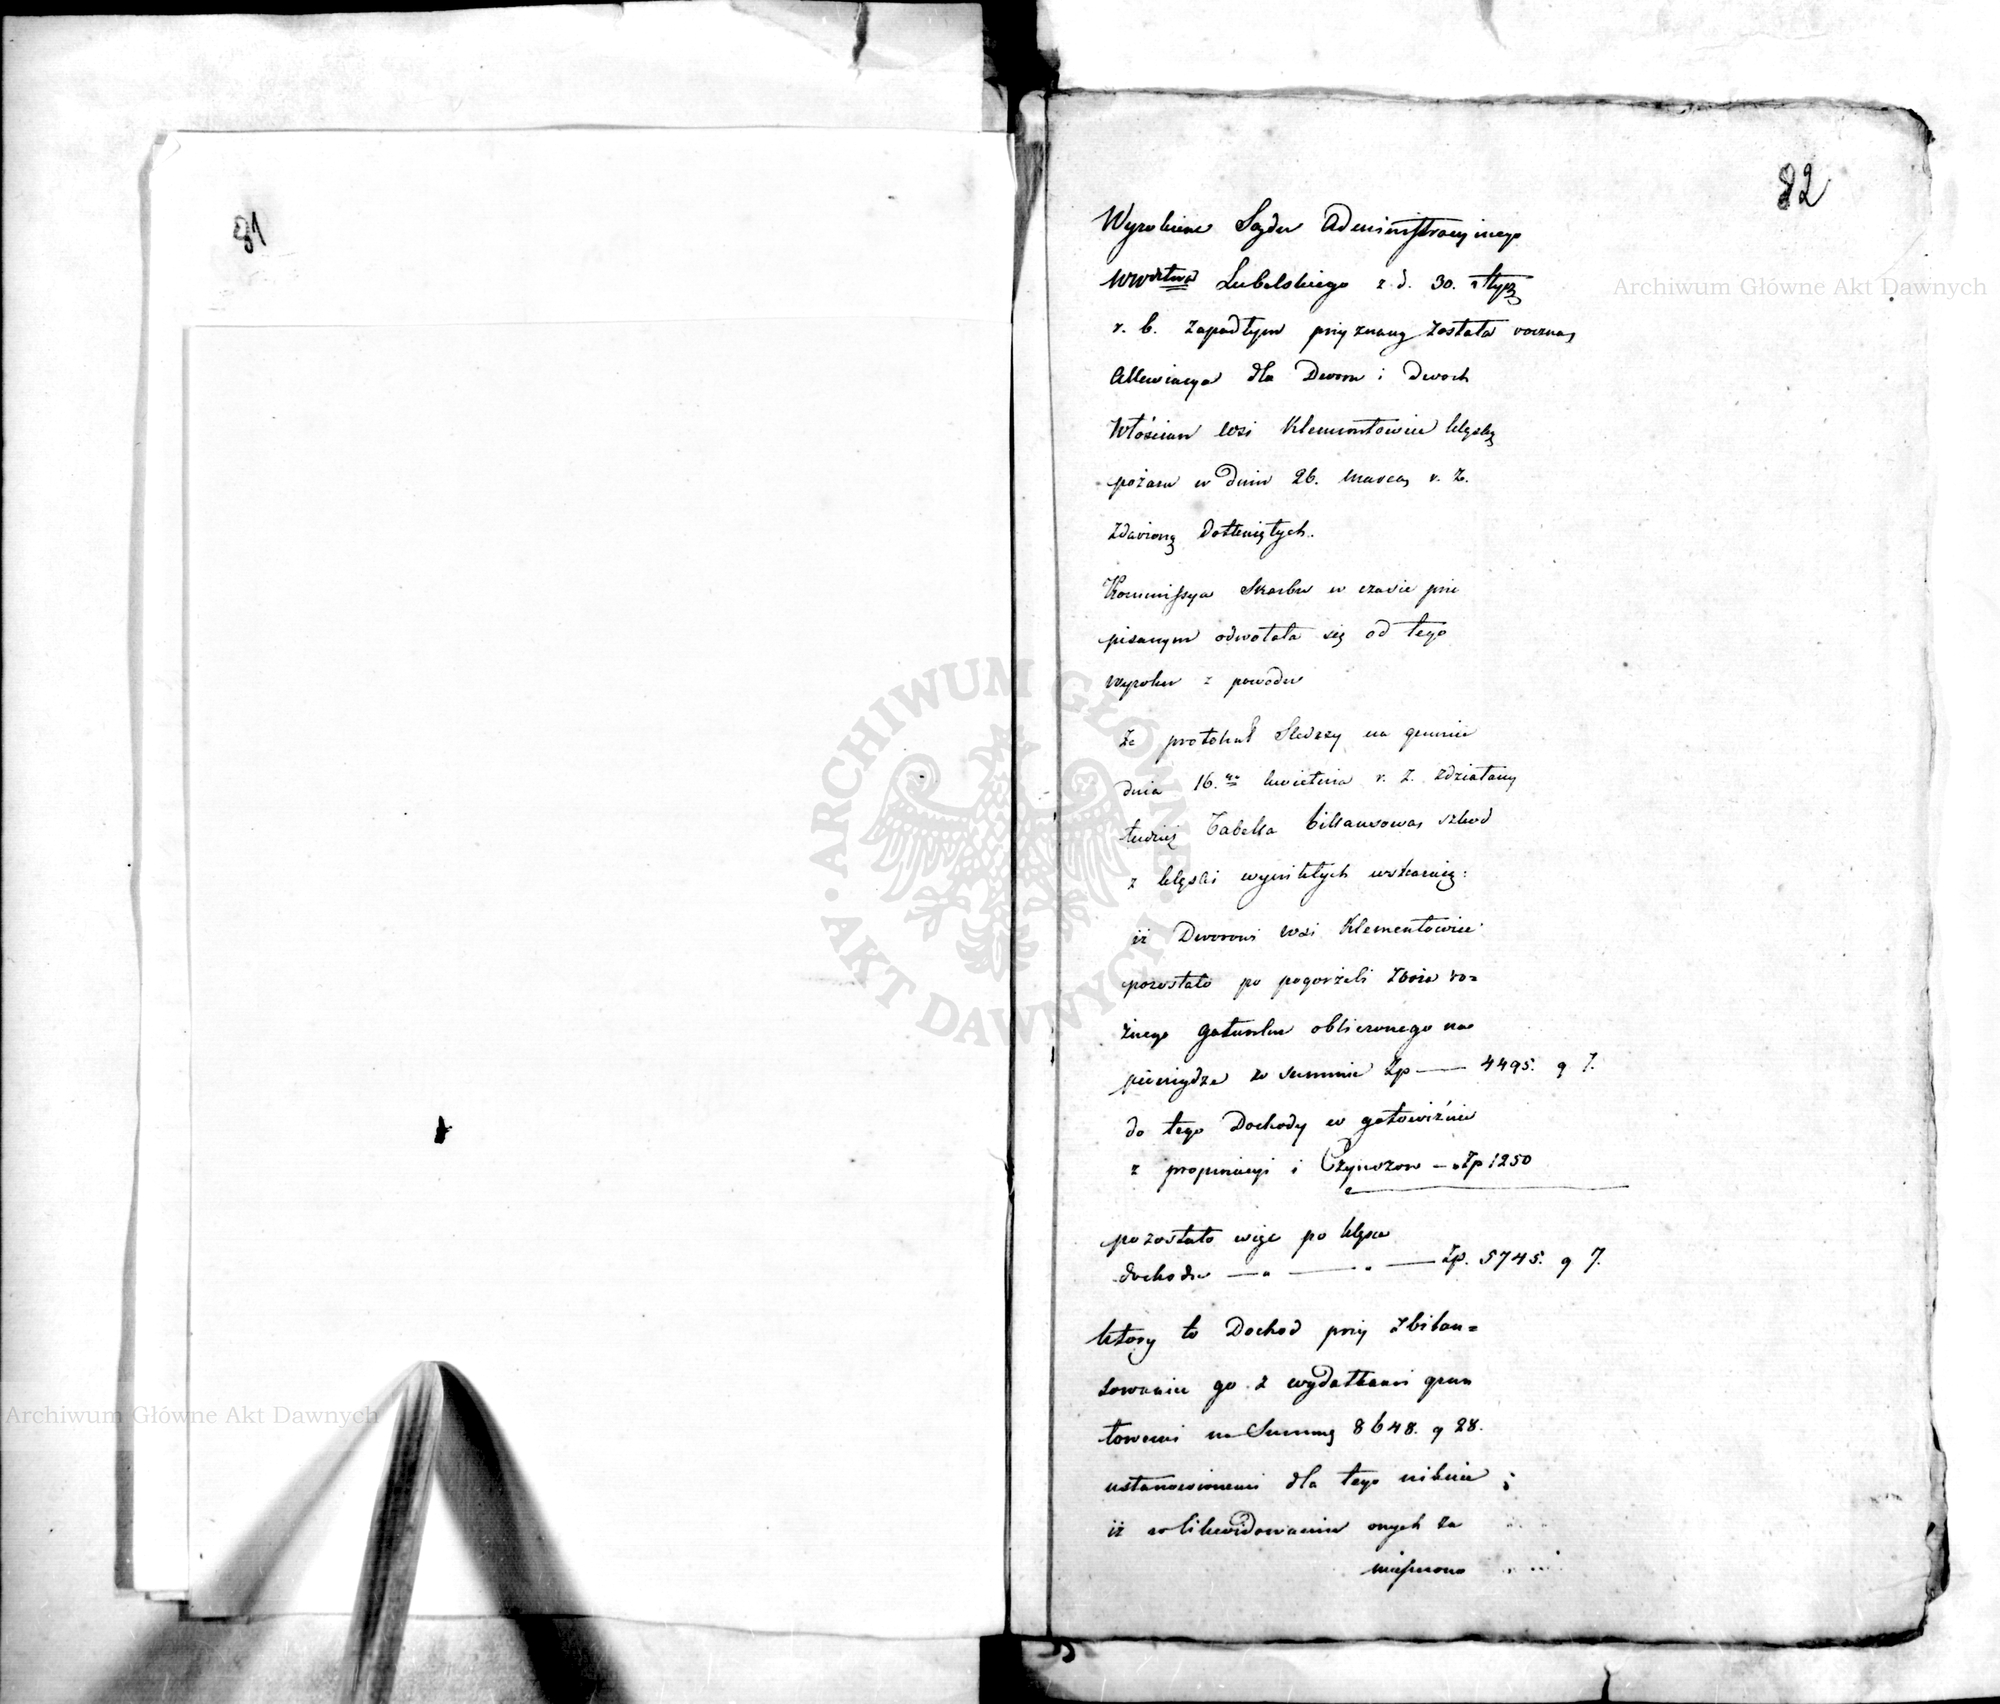 81
82
Wyrokiem Sądu Administracyinego
Wwdztwa Lubelskiego z d. 30. Stycz
r. b. zapadłym przyznaną została roczna
Allewiacya dla Dworu i dwoch
Włościan wsi Klementowice klęską
pożaru w dniu 26. marca r. z.
zdarzoną dotkniętych.
Kommissya Skarbu w czasie prze
pisanym odwołała się od tego
Wyroku z powodu
że protokuł Śledczy na gruncie
dnia 16.go kwietnia r. z. zdziałany
tudzież Tabella billansowa szkod
z klęski wynikłych wskazuią:
iż Dworowi wsi Klementowice
pozostało po pogorzeli zboża ro=
żnego gatunku obliczonego na
pieniądze w summie Zp — 4495. g 7.
do tego Dochody w gotowiźnie
z propinacyi i Czynszow — Zp 1250
pozostało więc po klęsce
dochodu — " — " — Zp. 5745. g 7.
ktory to Dochod przy zbilan=
sowaniu go z wydatkami grun
towemi na Summę 8648. g 28.
ustanowionemi dla tego niknie ;
iż w likwidowaniu onych za
mieszczono
Archiwum Główne Akt Dawnych
Archiwum Główne Akt Dawnych
ARCHIWUM GŁÓWNE · AKT DAWNYCH ·